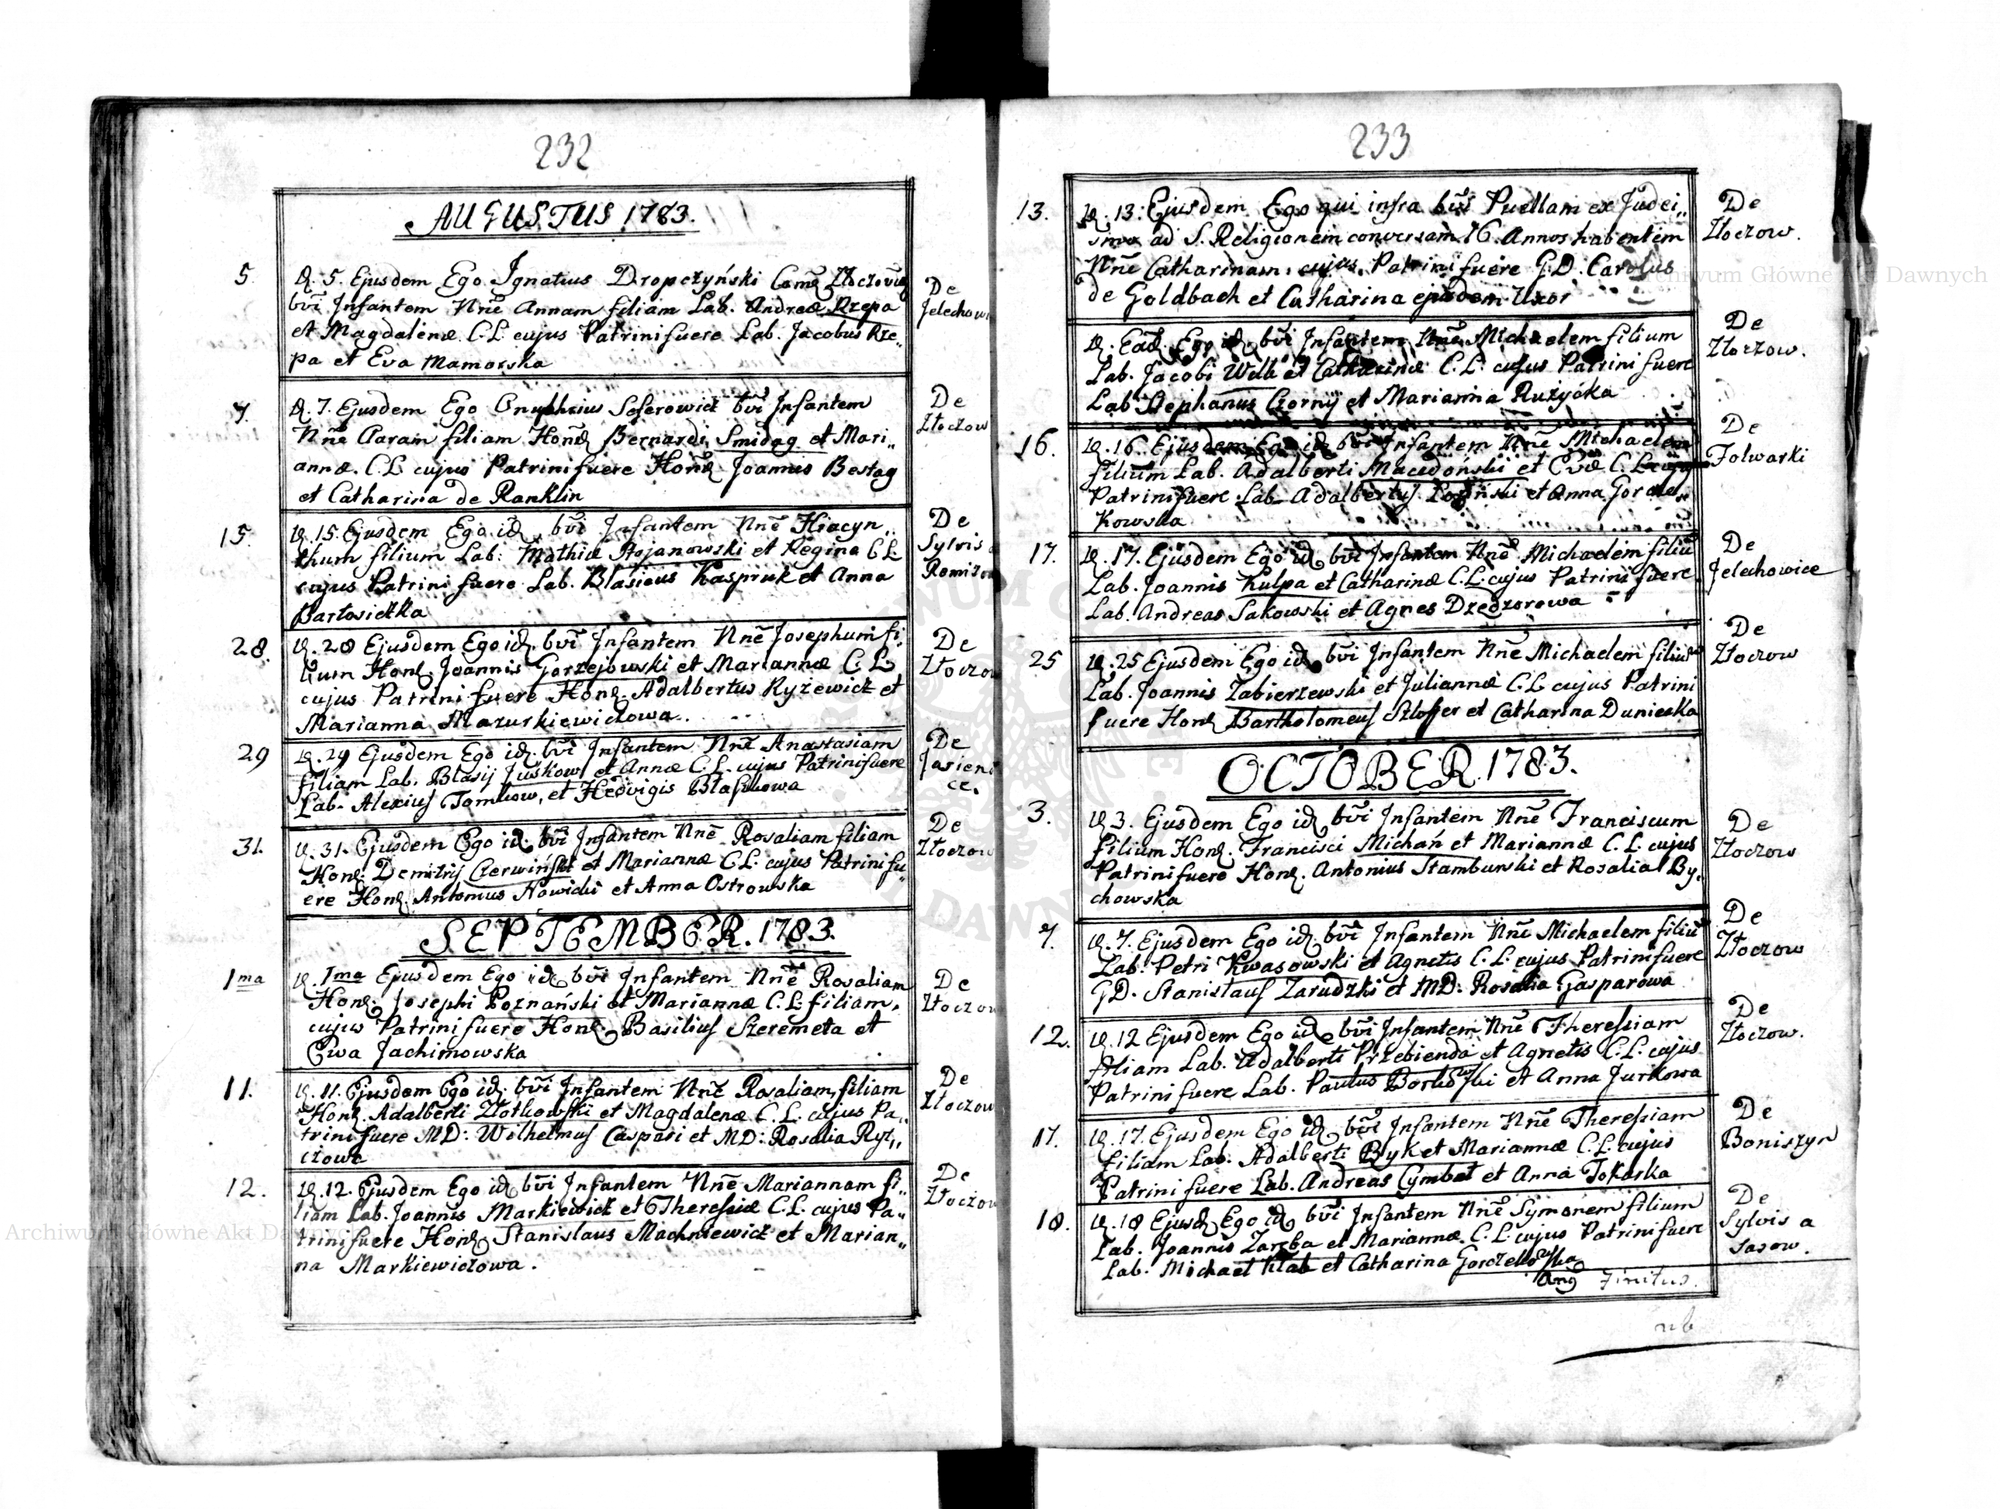 232
AUGUSTUS 1783.
5. D. 5. Ejusdem Ego Ignatius Dropczyński Comē Złoczoviēs
bvī Infantem Nnē Annam filiam Lab. Andreæ Rzepa
et Magdalenæ C.L. cujus Patrini fuere Lab. Jacobus Rze„
pa et Eva Mamorska
De
Jelechowi
7. D. 7. Ejusdem Ego Onuphrius Seferowicz bvī Infantem
Nnē filiam Honē Bernardi Smidag et Mari„
annæ. C.L cujus Patrini fuere Honē Joannes Bestag
et Catharina de Ranklin
De
Złoczow
15. D. 15. Ejusdem Ego id bvī Infantem Nnē Hiacyn„
thum filium Lab: Mathiæ Stojanowski et Regina C L
cujus Patrini fuere Lab. Blasieus Kaspruk et Anna
Bartosiczka
De
Sylvis
28. D. 28 Ejusdem Ego id bvī Infantem Nnē Josephum fi„
lium Honē Joannis Gorzejowski et Mariannæ C. L
cujus Patrini fuere Honē. Adalbertus Ryżewicz et
Marianna Mazurkiewiczowa.
De
Złoczow
29 D. 29 Ejusdem Ego id bvī Infantem Nnē Anastasiam
filiam Lab. Blasij Juskow et Annæ C.L. cujus Patrini fuere
Lab. Alexius Tomkow, et Hedvigis Blaszkowa
De
Jasieni
ce.
31. D. 31. Ejusdem Ego id bvī Infantem Nnē Rosaliam filiam
Honē Demitrij Czerwiński et Mariannæ C.L. cujus Patrini fu„
ere Honē Antonius Nowicki et Anna Ostrowska
De
Złoczow
SEPTEMBER. 1783.
1ma D. 1ma Ejusdem Ego id bvī Infantem Nnē Rosaliam
Honē Josephi Poznański et Mariannæ C.L filiam,
cujus Patrini fuere Honē Basilius Szeremeta et
Ewa Jachimowska
De
Złoczow
11. D. 11. Ejusdem Ego id bvī Infantem Nnē Rosaliam filiam
Honē Adalberti Złotkowski et Magdalenæ C.L. cujus Pa„
trini fuere MD: Wilhelmus Caspari et MD: Rosalia Ryt„
czowa
De
Złoczow
12. D. 12. Ejusdem Ego id bvī Infantem Nnē Mariannam fi„
liam Lab. Joannis Markiewicz et Theresiæ C.L. cujus Pa„
trini fuere Honē Stanislaus Machniewicz et Marian„
na Markiewiczowa.
De
Złoczow
233
13. D. 13. Ejusdem Ego qui infra bvī Puellam ex Judei„
smo ad S. Religionem conversam 16 Annos habentem
Nnē Catharinam, cujus Patrini fuere G.D. Carolus
de Goldbach et Catharina ejusdem Uxor
De
Złoczow.
D. Eād Ego id bvī Infantem Nnē Michaelem filium
Lab. Jacobi Wilk et Catharinæ C.L. cujus Patrini fuere
Lab Stephanus Czorny et Marianna Rużycka
De
Złoczow.
16. D. 16. Ejusdem Ego id bvī Infantem Nnē Michaelem
filium Lab. Adalberti Macedonski et Evæ C.L cujus
Patrini fuere Lab Adalbertus Łosiński et Anna Gorale„
kowska
De
Folwarki
17. D. 17. Ejusdem Ego id bvī Infantem Nnē Michaelem filiū
Lab. Joannis Kulpa et Catharinæ C.L. cujus Patrini fuere
Lab. Andreas Sakowski et Agnes Dzedzorowa
De
Jelechowice
25 D. 25 Ejusdem Ego id bvī Infantem Nnē Michaelem filiū
Lab. Joannis Zabierzewski et Juliannæ C.L cujus Patrini
fuere Honē Bartholomeus Szloser et Catharina Duniecka
De
Złoczow
OCTOBER. 1783.
3. D. 3. Ejusdem Ego id bvī Infantem Nnē Franciscum
filium Honē. Francisci Michań et Mariannæ C.L. cujus
Patrini fuere Honē. Antonius Stamburski et Rosalia By„
chowska
De
Złoczow
7. D. 7. Ejusdem Ego id bvī Infantem Nnē Michaelem filiū
Lab. Petri Kwasowski et Agnetis C.L. cujus Patrini fuere
GD. Stanislaus Zarudzki et MD: Rosalia Gasparowa
De
Złoczow
12. D. 12 Ejusdem Ego id bvī Infantem Nnē Theresiam
filiam Lab. Adalberti Przebienda et Agnetis C.L. cujus
Patrini fuere Lab. Paulus Borkowski et Anna Jurkowa
De
Złoczow.
17. D. 17. Ejusdem Ego id bvī Infantem Nnē Theresiam
filiam Lab: Adalberti Byk et Mariannæ C.L. cujus
Patrini fuere Lab. Andreas Cymbal et Anna Tokarska
De
Boniszyn
18. D. 18 Ejusd Ego id bvī Infantem Nnē Symonem filium
Lab. Joannis Zaręba et Mariannæ. C.L. cujus Patrini fuere
Lab. Michael Klab et Catharina Gorzelkowska
De
Sylvis a
Sasow.
Ang Finitus.
nb
Archiwum Główne Akt Dawnych
Archiwum Główne Akt Dawnych